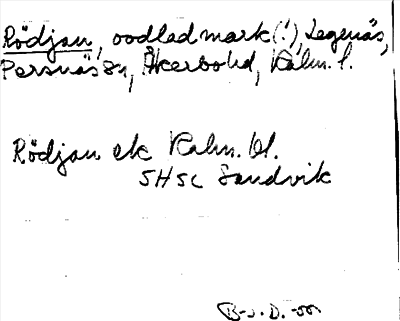 Rödjan, oodlad mark (!), Legenäs,
Persnäs sn, Åkerbo hd, Kalm. l.
Rödjan ek Kalm. bl.
5H5c Sandvik